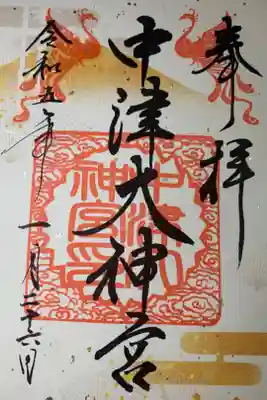 奉拝
中津大神宮
令和五年
一月二十六日
中津大
神宮印